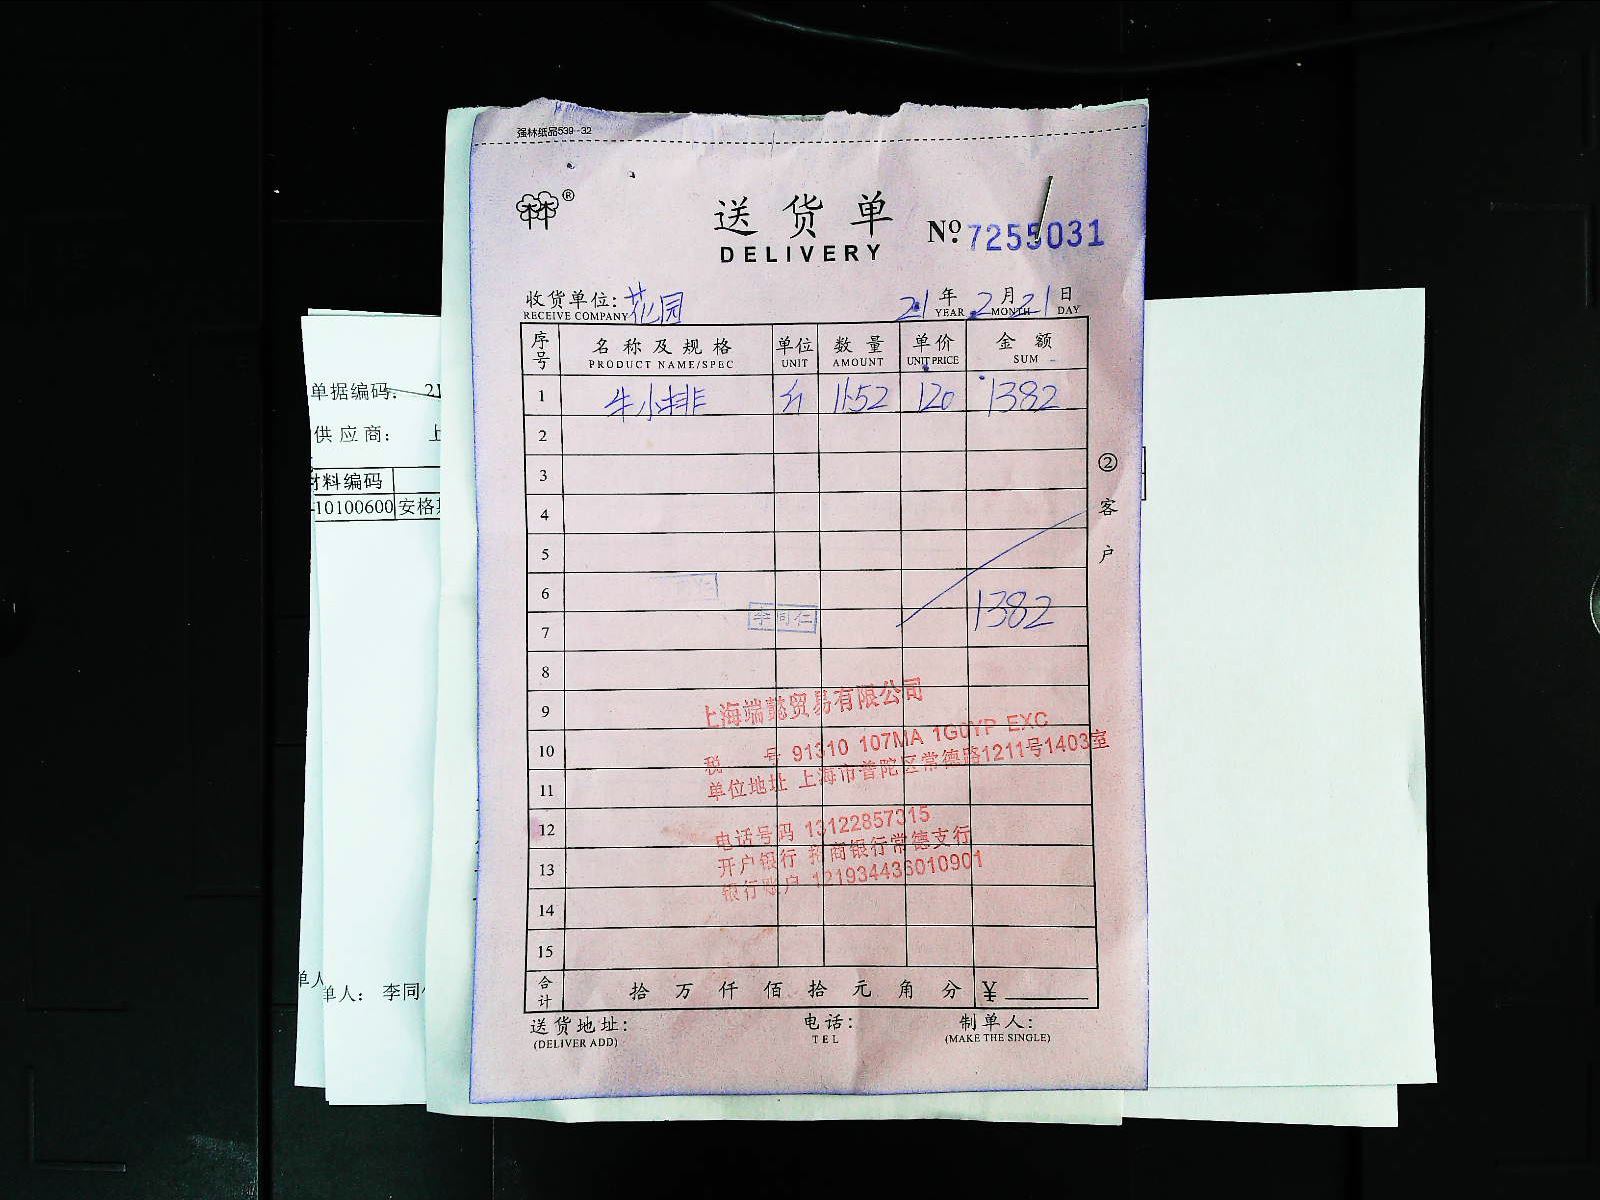 强林纸品539-32
®
送货单
DELIVERY
№ 7255031
收货单位: 花园
RECEIVE COMPANY
21年2月21日
YEAR MONTH DAY
序号 名称及规格 单位 数量 单价 金额
PRODUCT NAME/SPEC UNIT AMOUNT UNIT PRICE SUM
1 牛小排 斤 11.52 120 1382
2
3
4
5
6
7
1382
李同仁
8
9
10
11
12
13
14
15
上海端懿贸易有限公司
税 号 91310 107MA 1G0YP EXC
单位地址 上海市普陀区常德路1211号1403室
电话号码 13122857315
开户银行 招商银行常德支行
银行账户 121934436010901
合计 拾 万 仟 佰 拾 元 角 分 ¥
送货地址: 电话: 制单人:
(DELIVER ADD) TEL (MAKE THE SINGLE)
②客户
单据编码: 21
供应商: 上
材料编码
10100600 安格
单人
单人: 李同